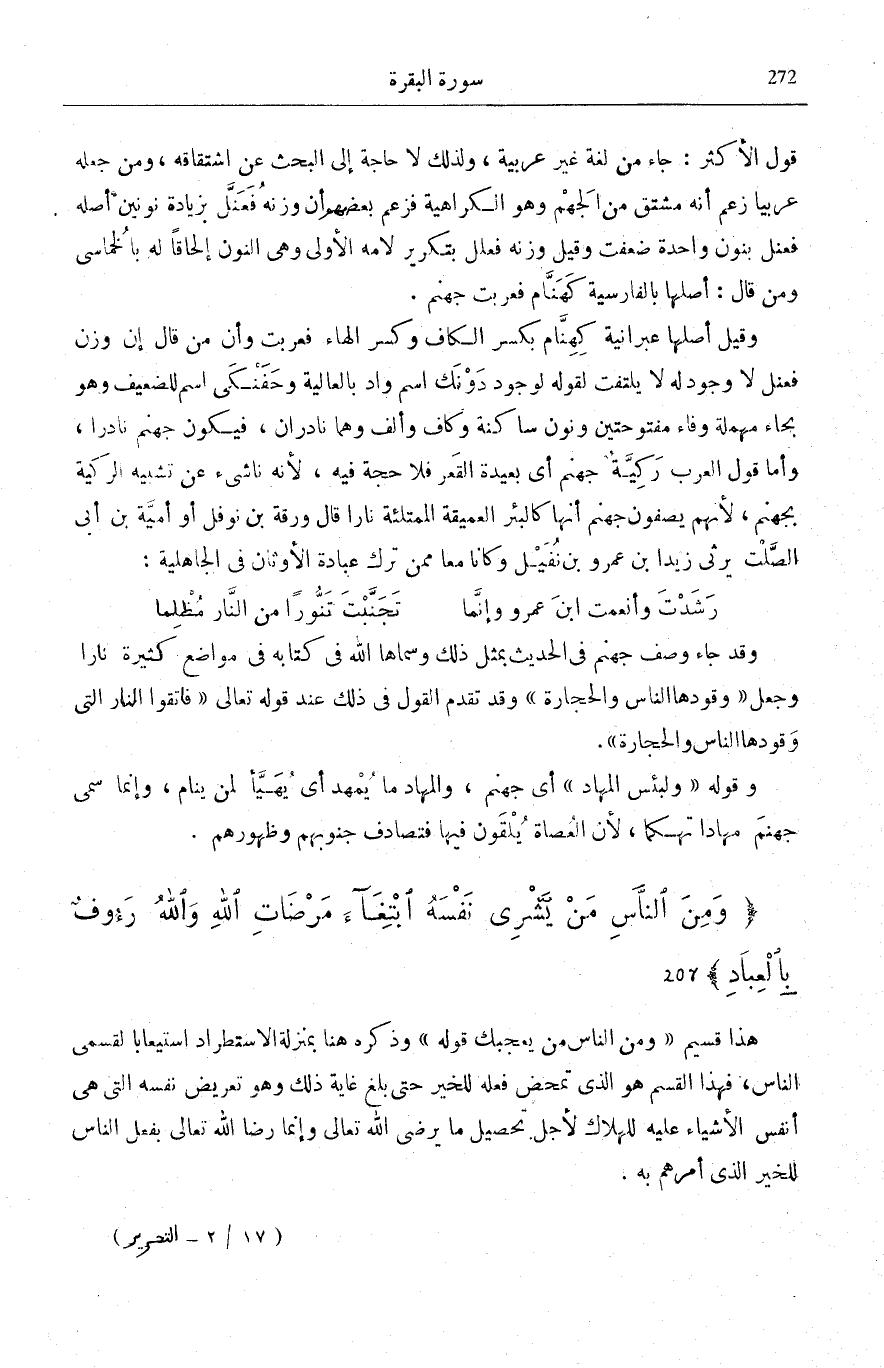 272
سورة البقرة
قول الأكثر : جاء من لغة غير عربية ، ولذلك لا حاجة إلى البحث عن اشتقاقه ، ومن جعله
عربيا زعم أنه مشتق من الجهْم وهو الكراهية فزعم بعضهم أن وزنه فُعَنَّل بزيادة نونين أصله
فعنل بنون واحدة ضعفت وقيل وزنه فعلل بتكرير لامه الأولى وهى النون إلحاقاً له بالخُماسى
ومن قال : أصلها بالفارسية كَهَنَّام فعربت جهنم .
وقيل أصلها عبرانية كِهِنَّام بكسر الكاف وكسر الهاء فعربت وأن من قال إن وزن
فعنل لا وجود له لا يلتفت لقوله لوجود دَوْنَك اسم واد بالعالية وحَفَنْكَى اسم للضعيف وهو
بحاء مهملة وفاء مفتوحتين ونون ساكنة وكاف وألف وهما نادران ، فيكون جهنم نادرا ،
وأما قول العرب رَكِيَّة جهنم أى بعيدة القَعر فلا حجة فيه ، لأنه ناشىء عن تشبيه الركية
بجهنم ، لأنهم يصفون جهنم أنها كالبئر العميقة الممتلئة نارا قال ورقة بن نوفل أو أميَّة بن أبى
الصَّلْت يرثى زيدا بن عمرو بن نُفَيْل وكانا معا ممن ترك عبادة الأوثان فى الجاهلية :
رَشَدْتَ وأنعمت ابنَ عمرو وإنَّما تَجَنَّبْتَ تَنُّورًا من النَّار مُظْلِما
وقد جاء وصف جهنم فى الحديث بمثل ذلك وسماها الله فى كتابه فى مواضع كثيرة نارا
وجعل « وقودها الناس والحجارة » وقد تقدم القول فى ذلك عند قوله تعالى « فاتقوا النار التى
وَقودها الناس والحجارة» .
و قوله « ولبئس المهاد » أى جهنم ، والمهاد ما يُمْهد أى يُهَيَّأ لمن ينام ، وإنما سمى
جهنمَ مهادا تهكما ، لأن العُصاة يُلْقَون فيها فتصادف جنوبهم وظهورهم .
﴿ وَمِنَ ٱلنَّاسِ مَنْ يَّشْرِى نَفْسَهُ ٱبْتِغَآءَ مَرْضَاتِ ٱللَّهِ وَٱللَّهُ رَءُوفٌ
بِٱلْعِبَادِ ﴾ 207
هذا قسيم « ومن الناس من يعجبك قوله » وذكره هنا بمنزلة الاستطراد استيعابا لقسمى
الناس، فهذا القسم هو الذى تمحض فعله للخير حتى بلغ غاية ذلك وهو تعريض نفسه التى هى
أنفس الأشياء عليه للهلاك لأجل تحصيل ما يرضى الله تعالى وإنما رضا الله تعالى بفعل الناس
للخير الذى أمرهم به .
( ١٧ / ٢ – التحرير)